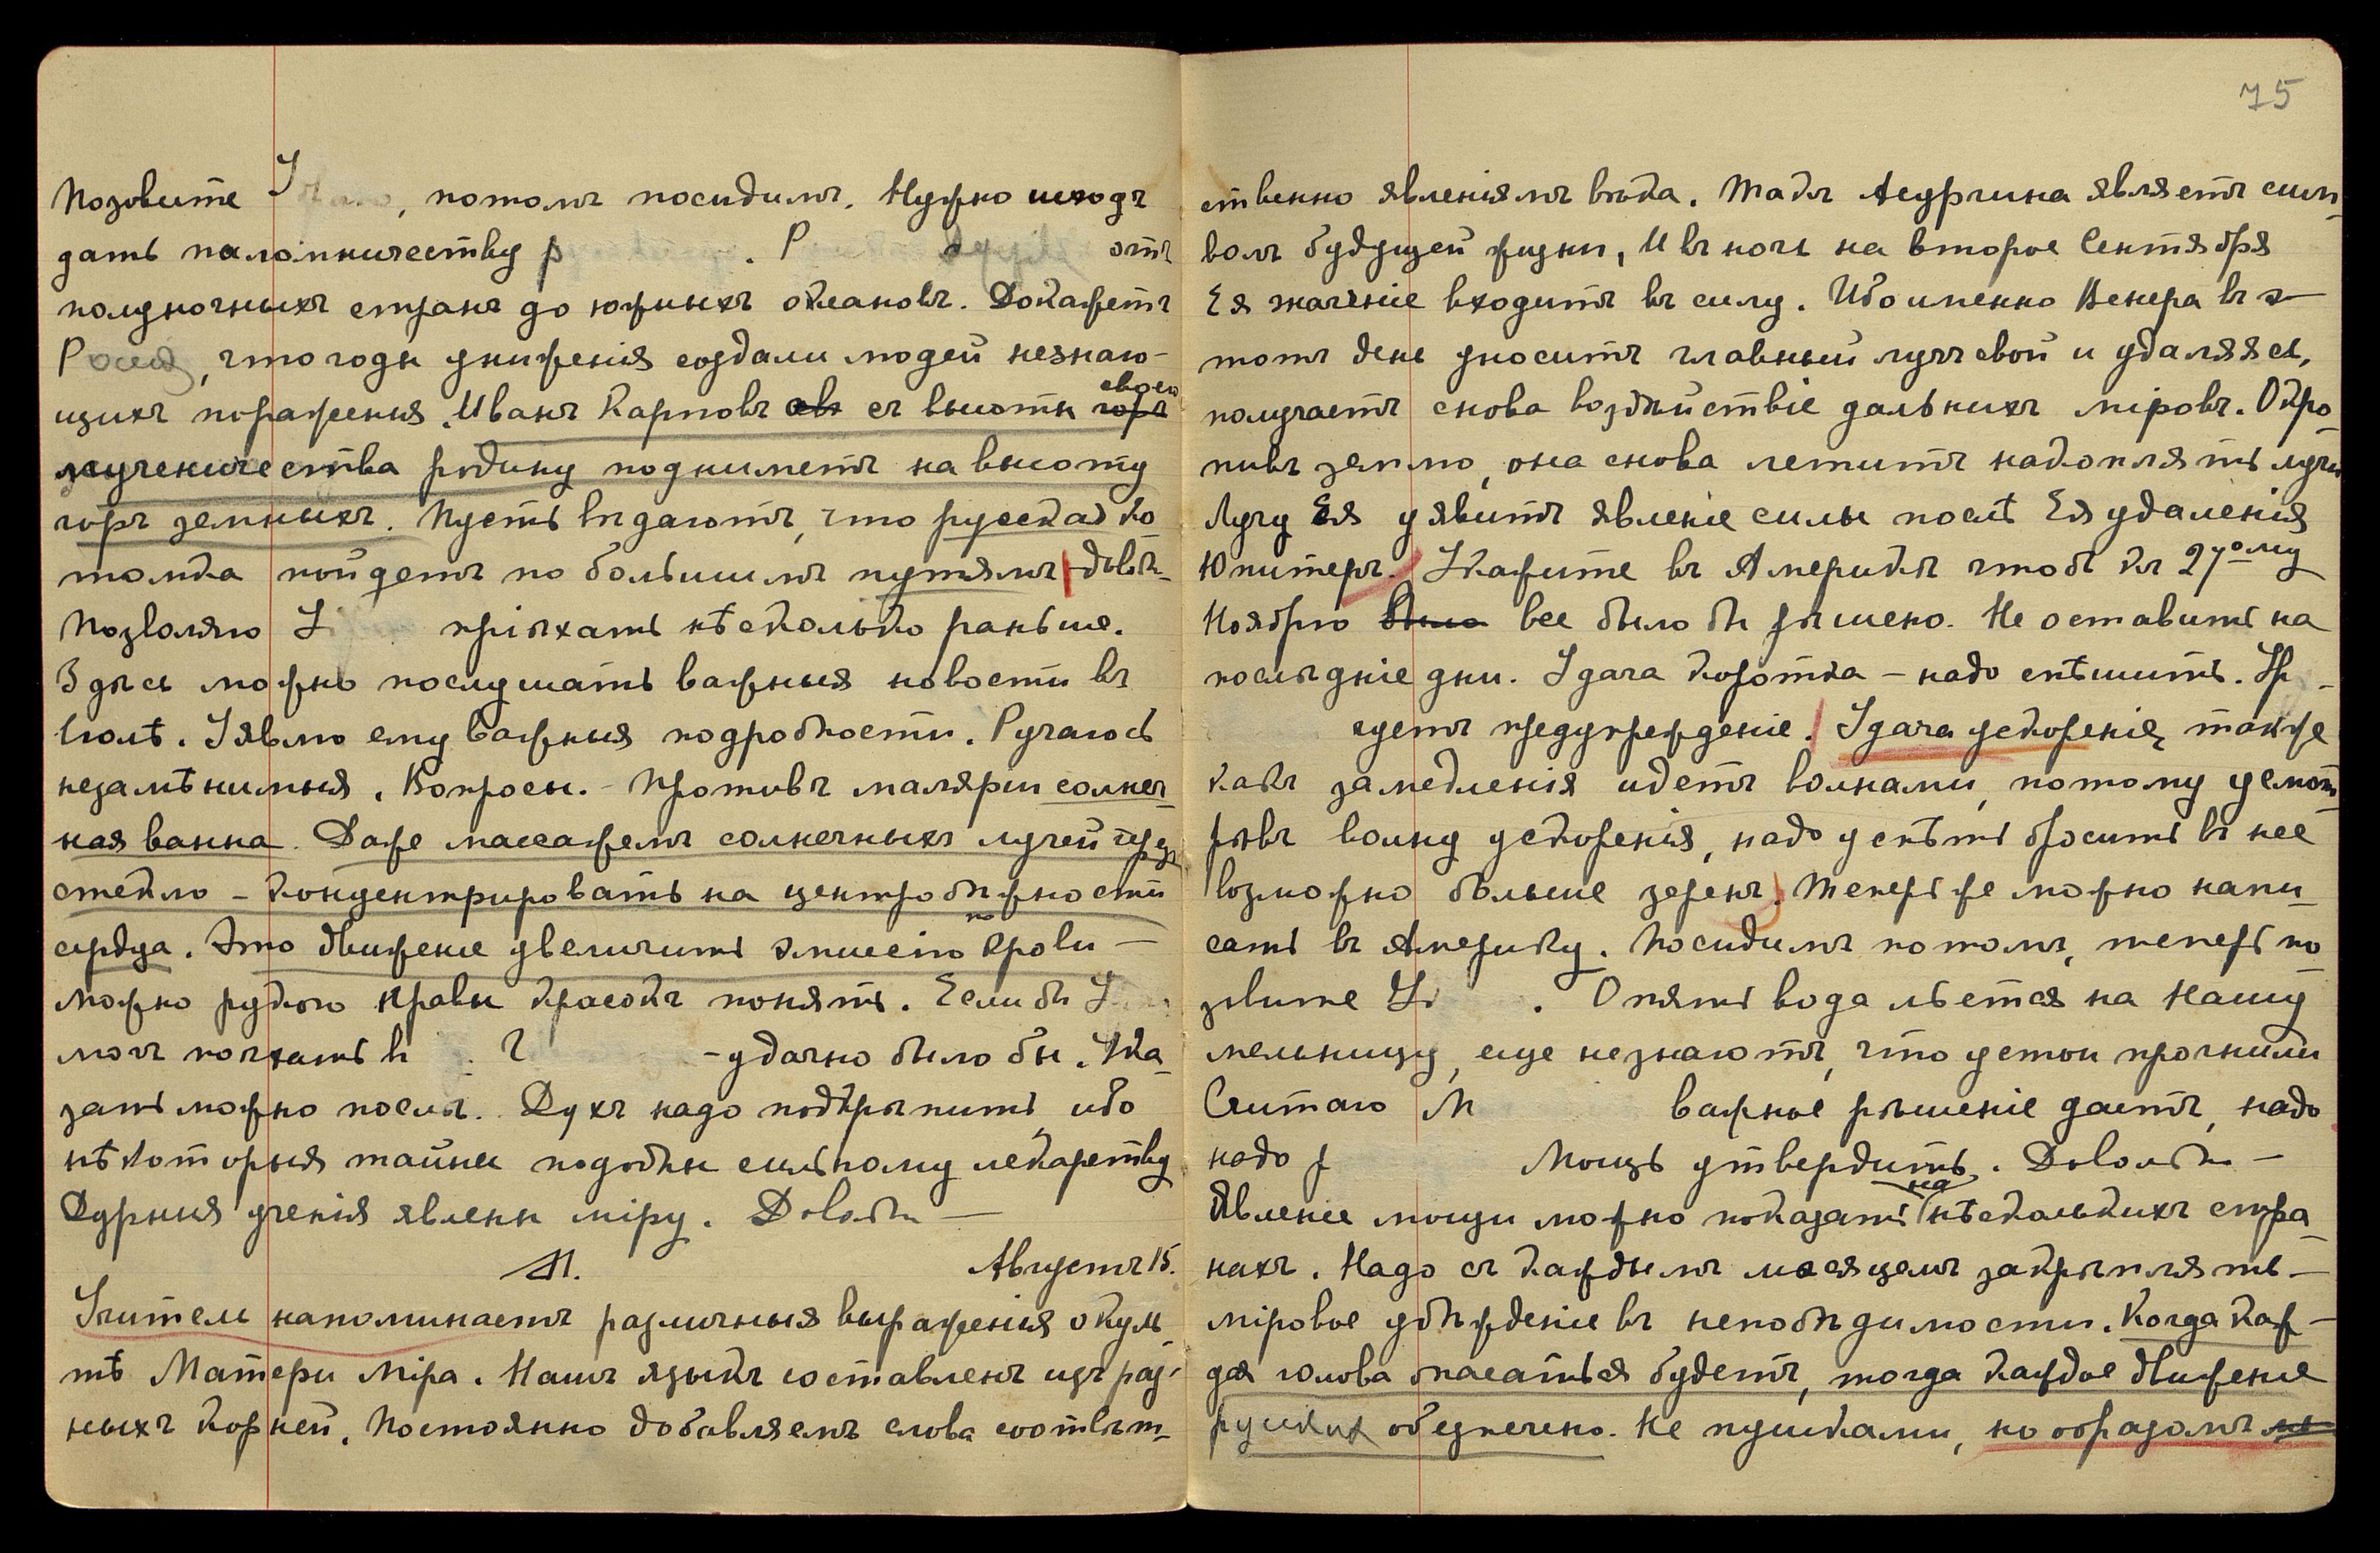 Позовите У, потомъ посидимъ. Нужно исходъ
дать паломничеству р . Р отъ
полуночныхъ странъ до южныхъ океановъ. Докажетъ
Россия, что годы унижения создали людей незнаю-
щихъ поражения. Иванъ Карповъ съ высоты своего
мученичества родину подниметъ на высоту
горъ земныхъ. Пусть вѣдаютъ, что русская ко
томка пойдетъ по большимъ путямъ довл.
Позволяю У пріѣхать нѣсколько раньше.
Здѣсь можно послушать важныя новости въ
Уявлю ему важныя подробности. Ручаюсь
незамѣнимыя. Вопросы. - Противъ маляріи солнеч-
ная ванна. Даже массажемъ солнечныхъ лучей чрезъ
стекло - концентрировать на центробѣжности
сердца. Это движение увеличитъ эмиссію крови -
можно рукою нравы красокъ понять. Если бы У
могъ поѣхать в . 2 - удачно было бы. Ука-
зать можно послѣ. Духъ надо подкрѣпить, ибо
нѣкоторыя тайны подобны сильному лекарству
Дурныя ученія явлены міру. Довольно —
М. Августъ 15.
Учитель напоминаетъ различныя выраженія о куль
тѣ Матери Міра. Нашъ языкъ составленъ изъ раз-
ныхъ корней. Постоянно добавляемъ слова соотвѣт-
75
ственно явленіямъ вѣка. Такъ Аедргина являетъ сим-
волъ будущей жизни, И въ ночь на второе Сентября
Ея значеніе входитъ въ силу. Ибо именно Венера въ э-
тотъ день уноситъ главный лучъ свой и удаляясь,
получаетъ снова воздѣйствіе дальнихъ міровъ. Окро-
пивъ землю, она снова летитъ накоплять лучи
Лучу Ея уявитъ явленіе силы послѣ Ея удаленія
Юпитеръ. Укажите въ Америкѣ чтобъ къ 27ому
Ноябрю все было бы рѣшено. Не оставить на
послѣдніе дни. Удача коротка - надо спѣшить. Ур -
предупрежденіе. Удача ускоренія, также
какъ замедленія идетъ волнами, потому усмот-
рѣвъ волну ускоренія, надо успѣть бросить въ нее
возможно больше зеренъ. Теперь же можно напи-
сать въ Америку. Посидимъ потомъ, теперь по
зовите У . Опять вода льется на Нашу
мельницу, еще не знаютъ, что устои прочнили
Считаю М важное рѣшеніе даетъ, надо
надо р Мощь утвердить. Довольно —
Явление мощи можно показать на нѣсколькихъ стра-
нахъ. Надо съ каждымъ мѣсяцемъ закрѣплять -
міровое убѣжденіе въ непобѣдимости. Когда каж-
дая голова опасаться будетъ, тогда каждое движение
русскихъ обезпечено. Не пушками, но образомъ